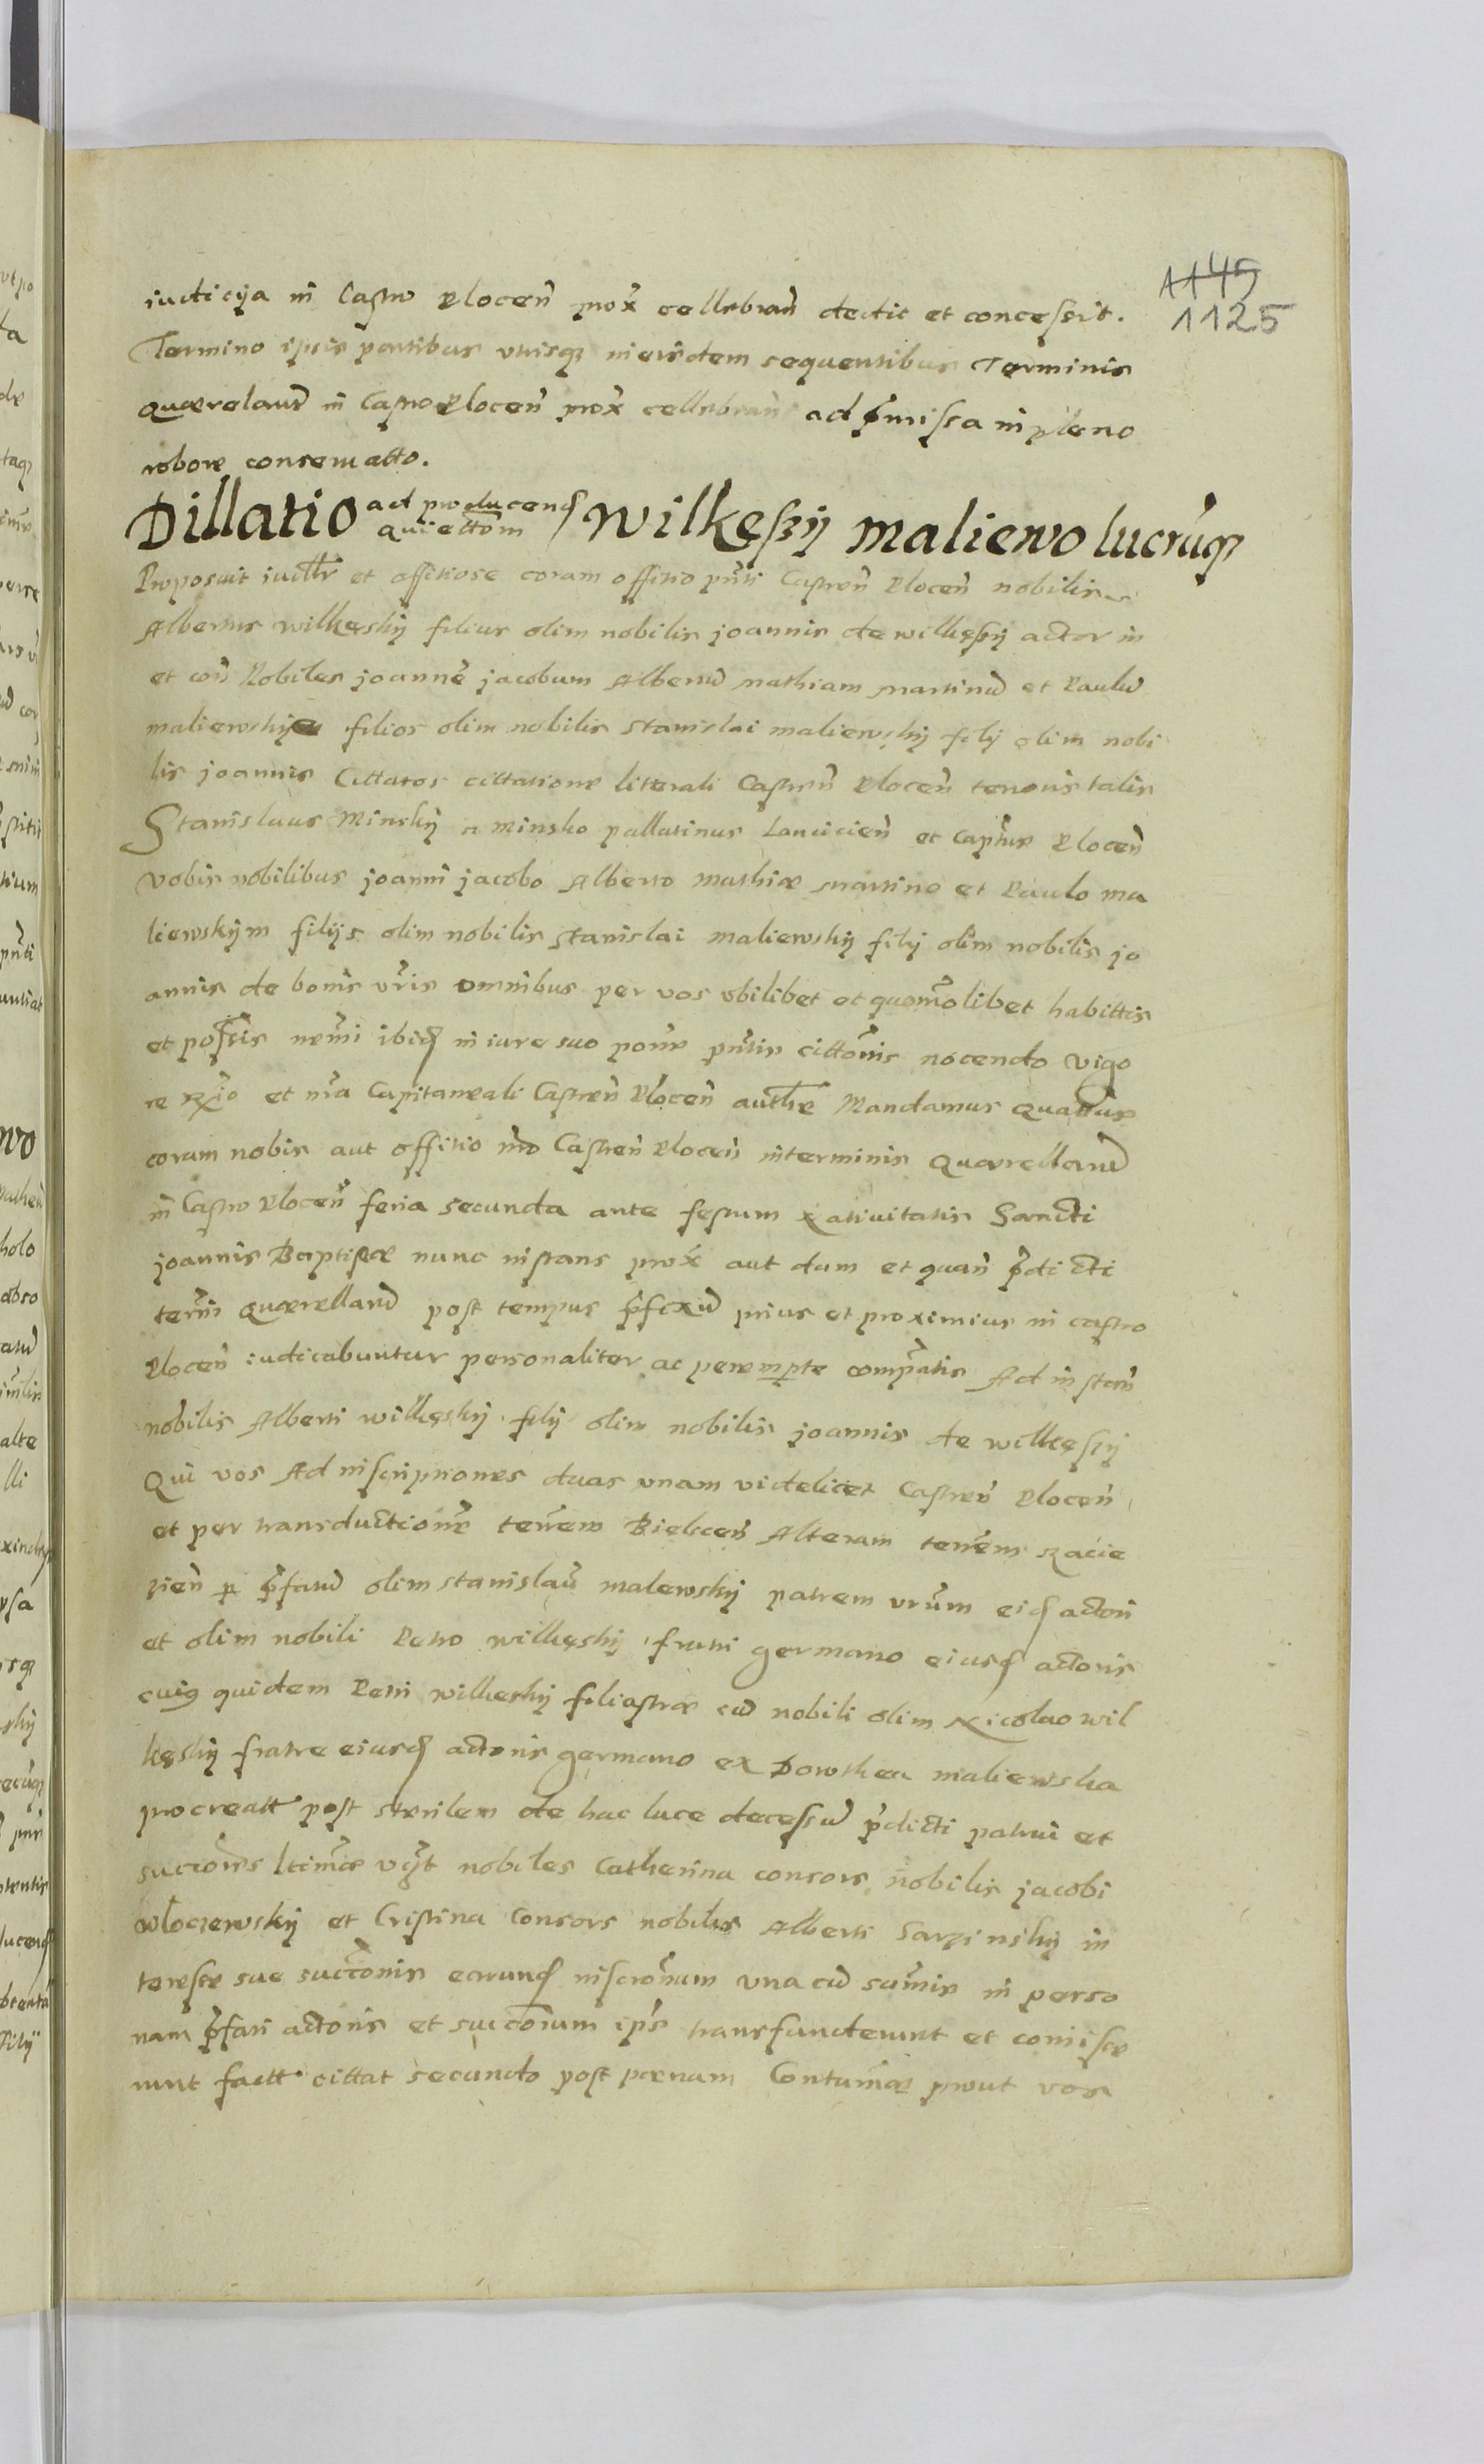 1145
1125
iudicija in Castro Plocen̄ prox̄ cellebran̄ dedit et concessit.
Termino ipsis partibus utrisq; in eisdem sequentibus Terminis
Quaerelaru̅ in Castro Plocen̄ prox̄ cellebran̄ ad p̄missa in pleno
robore conservatto.
Dillatio ad producend Wilkęszij Maliewo lucruq;
quiettom̄
Proposuit iudr̄ et offitiose coram offitio pn̄ti Castren̄ Plocen̄ nobilis
Albertus Wilkęskij filius olim nobilis Joannis de Wilkęszij actor in
et con̄ Nobiles Joanne̅ Jacobum Albertu̅ Mathiam Martinu̅ et Paulu̅
Maliewskije filios olim nobilis Stanislai Maliewskij filij olim nobi
lis Joannis Cittatos cittatione literali Castren̄ Plocen̄ tenoris talis
Stanislaus Minskij a Minsko pallatinus Lancicien̄ et Capn̄us Plocen̄
Vobis nobilibus Joanni Jacobo Alberto Mathiae Martino et Paulo Ma
liewskijm filijs olim nobilis Stanislai Maliewskij filij olim nobilis Jo
annis de bonis vr̄is omnibus per vos ubilibet et quom̄olibet habittis
et poss̄is nem̄i ibid in iure suo pon̄e pn̄tis citton̄is nocendo vigo
re Rx̄io et nr̄a Capitaneali Castren̄ Plocen̄ authe̅ Mandamus Quat̄us
coram nobis aut offitio nr̄o Castren̄ Plocen̄ in terminis Quaerellaru̅
in Castro Plocen̄ feria secunda ante festum Nativitatis Sancti
Joannis Baptistae nunc instans prox̄ aut dum et quan̄ p̄dicti
term̄i Quaerellaru̅ post tempus p̄fixu̅ prius et proximius in castro
Plocen̄ iudicabuntur personaliter ac perempte comp̄atis Ad instan̄
nobilis Alberti Wilkęskij filij olim nobilis Joannis de Wilkęszij
Qui vos Ad inscriptiones duas unam videlicet Castren̄ Plocen̄
et per transductione̅ terrem̄ Bielscen̄ Alteram terrem̄ Racie
zien̄ p̄ p̄fatu̅ olim Stanislau̅ Malewskij patrem vr̄um eid actori
et olim nobili Petro Wilkęskij fratri germano eiusd actoris
cuiq quidem Petri Wilkeskij filiastrae cu̅ nobili olim Nicolao Wil
kęskij fratre eiusd actoris germano ex Dorothea Maliewska
procreatt post sterilem de hac luce decessu̅ p̄dicti patrui et
succor̄es ltim̄ae vꝫt nobiles Catherina consors nobilis Jacobi
Wloczewskij et Cristina Consors nobilis Alberti Sarzinskij in
teresse sue succon̄is earund inscron̄um una cu̅ sum̄is in perso
nam p̄fati actoris et succorum ip̄s transfuderunt et comisse
runt factt cittat secundo post paenam Contum̄ prout vos